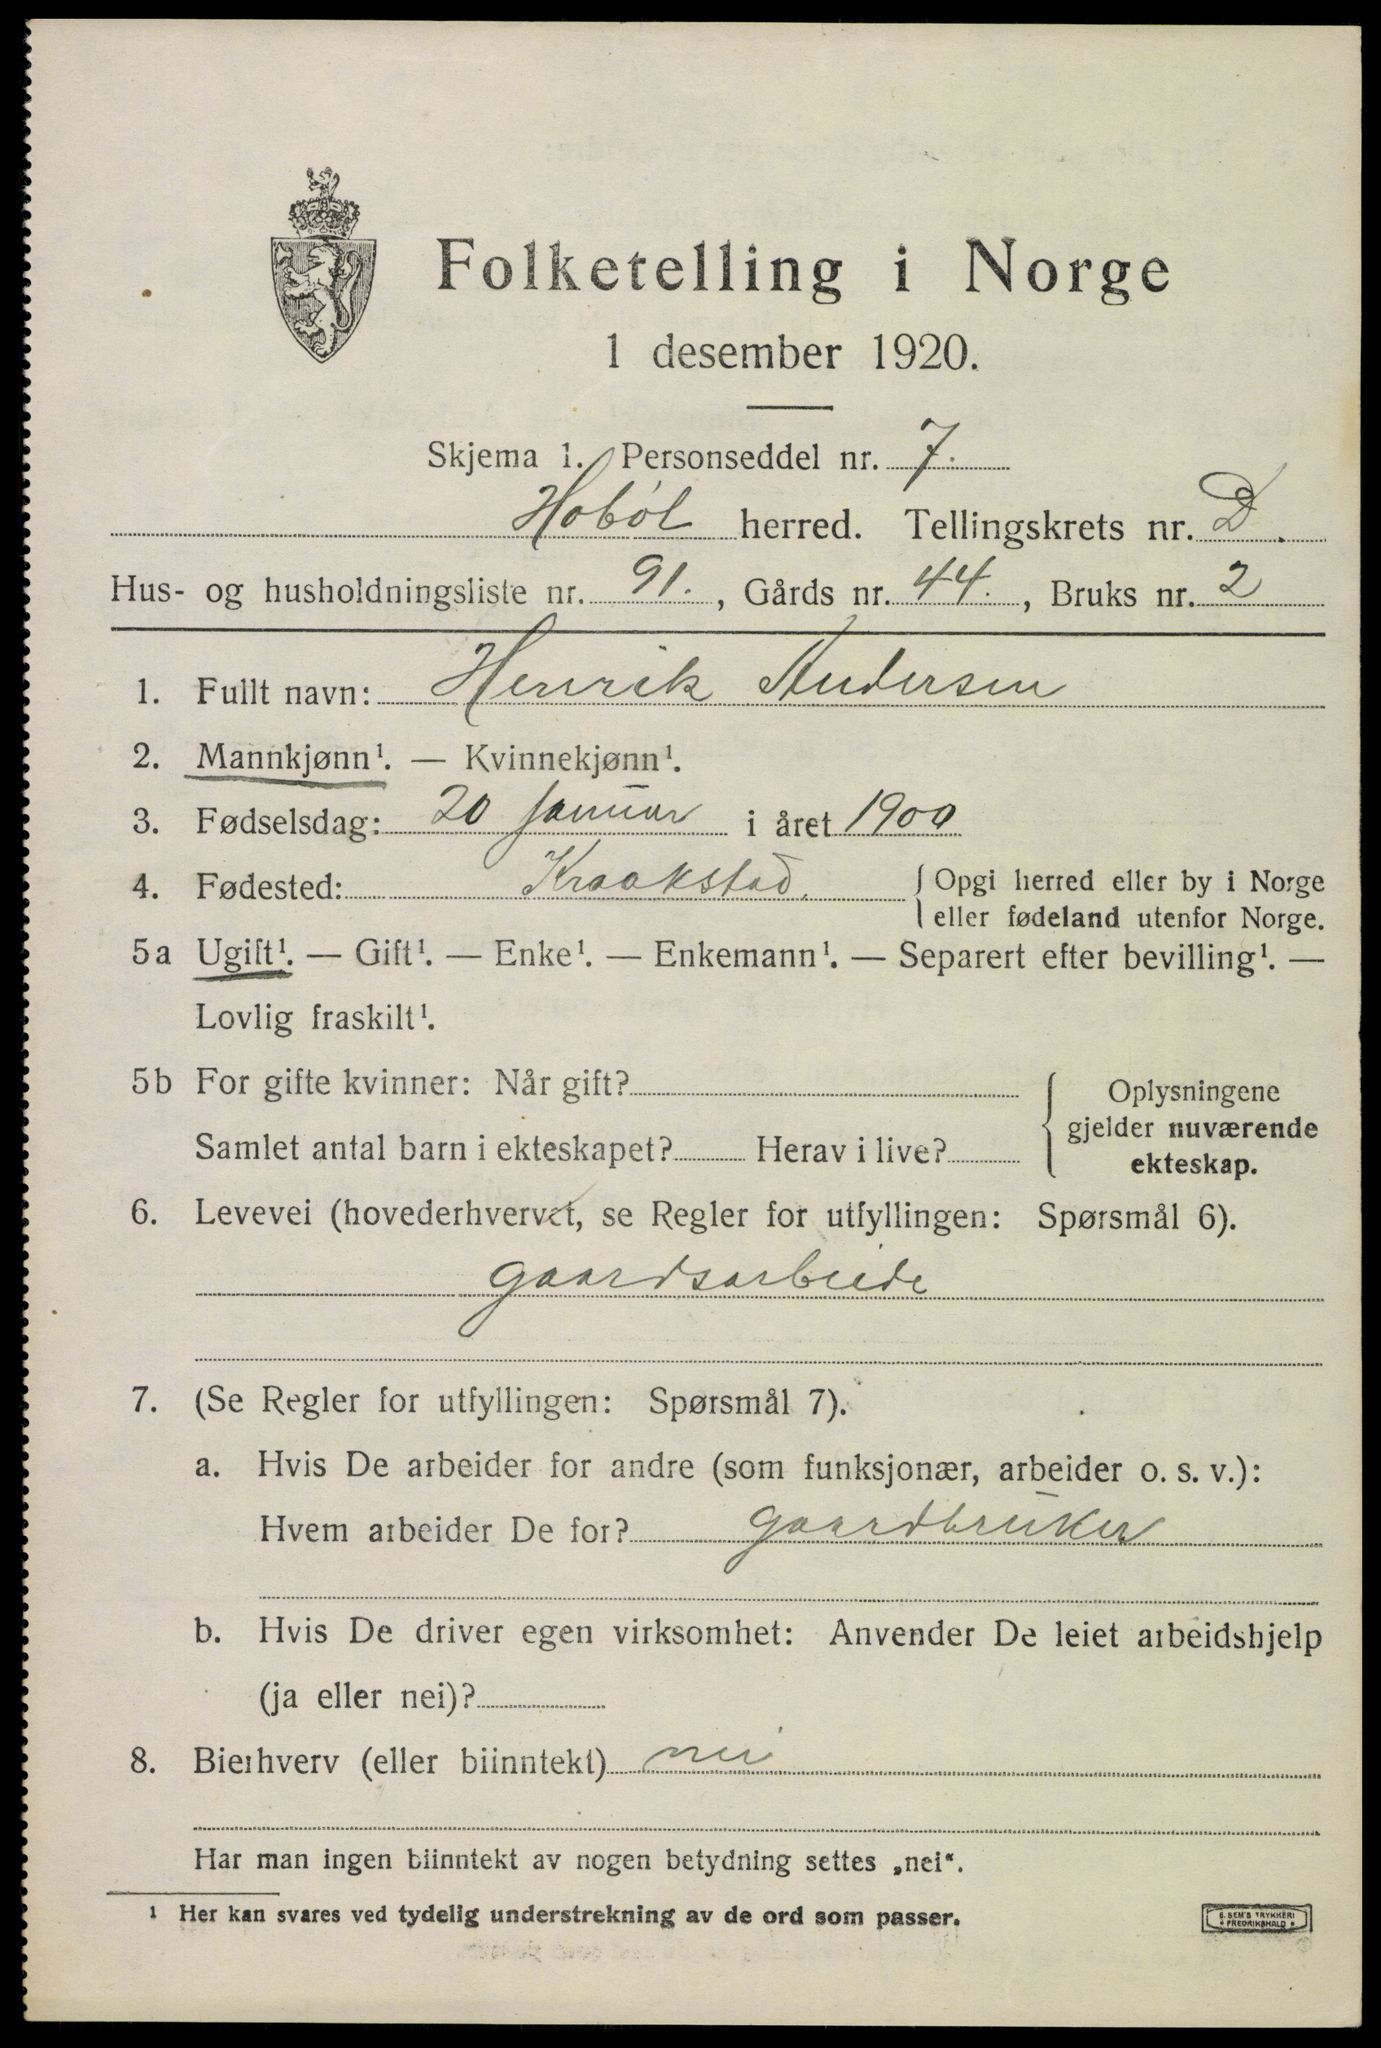 Folketelling i Norge
1 desember 1920.
Skjema 1. Personseddel nr. 7.
Hobøl herred. Tellingskrets nr. D.
Hus- og husholdningsliste nr. 91., Gårds nr. 44., Bruks nr. 2
1. Fullt navn: Henrik Andersen
2. Mannkjønn¹. — Kvinnekjønn¹.
3. Fødselsdag: 20 januar i året 1900
4. Fødested: Kraakstad. Opgi herred eller by i Norge
eller fødeland utenfor Norge.
5a Ugift¹. — Gift¹. — Enke¹. — Enkemann¹. — Separert efter bevilling¹. —
Lovlig fraskilt¹.
5b For gifte kvinner: Når gift?
Samlet antal barn i ekteskapet? Herav i live?
Oplysningene
gjelder nuværende
ekteskap.
6. Levevei (hovederhvervet, se Regler for utfyllingen: Spørsmål 6).
gaardsarbeide
7. (Se Regler for utfyllingen: Spørsmål 7).
a. Hvis De arbeider for andre (som funksjonær, arbeider o. s. v.):
Hvem arbeider De for? gaardbruker
b. Hvis De driver egen virksomhet: Anvender De leiet arbeidshjelp
(ja eller nei)?
8. Bierhverv (eller biinntekt) nei
Har man ingen biinntekt av nogen betydning settes „nei“.
¹ Her kan svares ved tydelig understrekning av de ord som passer.
E. SEM'S TRYKKERI
FREDRIKSHALD